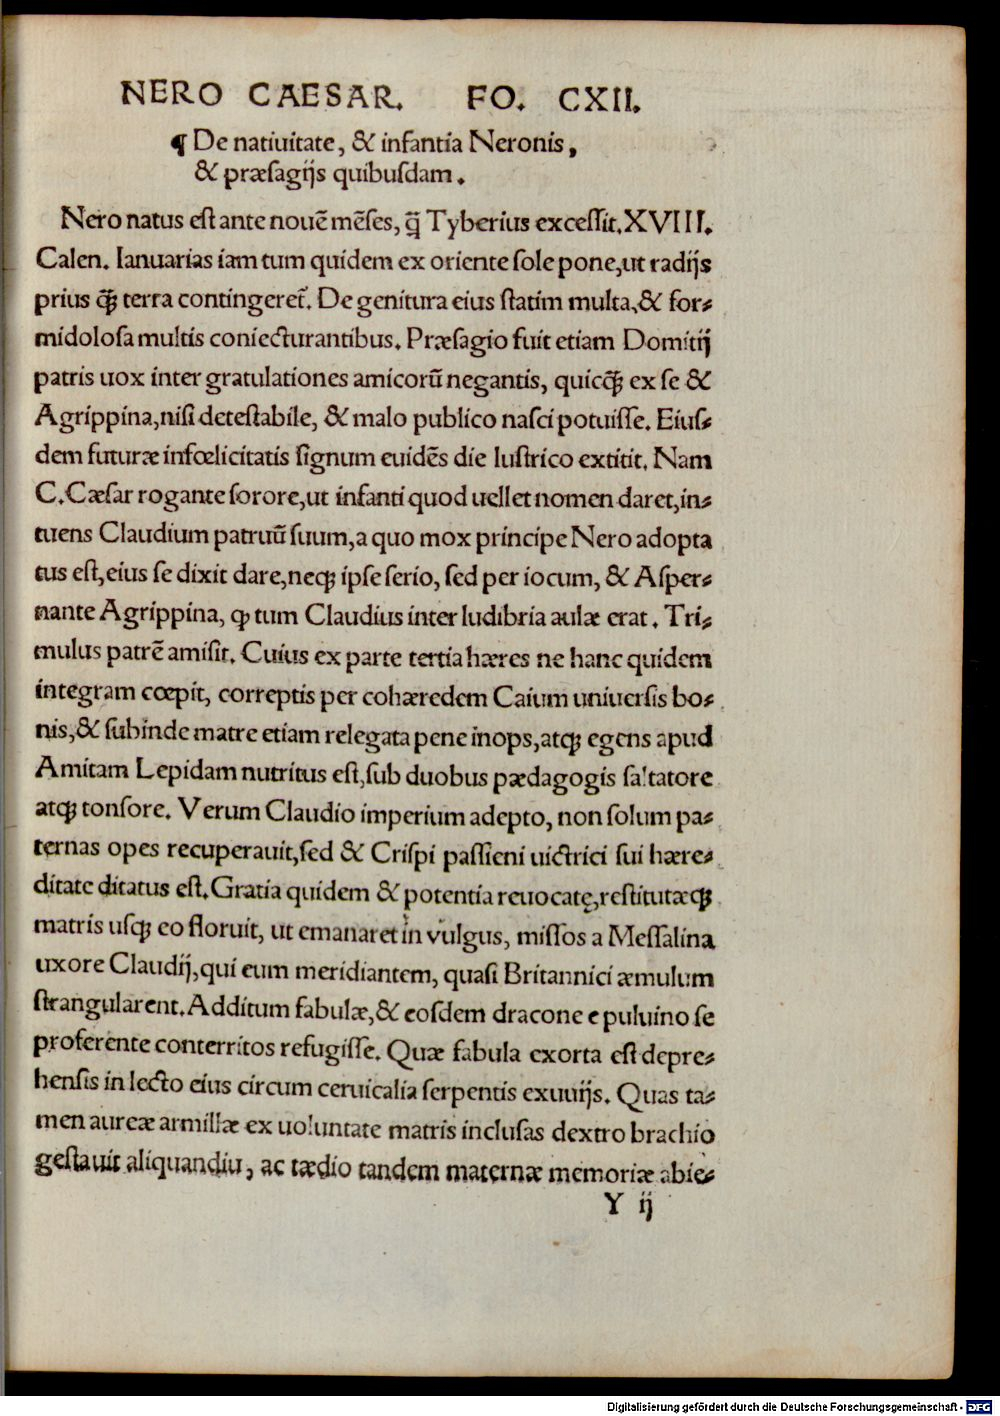 NERO CAESAR. FO. CXII.
¶ De natiuitate, & infantia Neronis,
& præsagijs quibusdam.
Nero natus est ante nouē mēses, q̃ Tyberius excessit. XVIII.
Calen. Ianuarias iam tum quidem ex oriente sole pone, ut radijs
prius q̃ȝ terra contingeret̃. De genitura eius statim multa, & for-
midolosa multis coniecturantibus. Præsagio fuit etiam Domitij
patris uox inter gratulationes amicorū negantis, quicq̃ȝ ex se &
Agrippina, nisi detestabile, & malo publico nasci potuisse. Eius-
dem futuræ infœlicitatis signum euidēs die lustrico extitit. Nam
C. Cæsar rogante sorore, ut infanti quod uellet nomen daret, in-
tuens Claudium patruū suum, a quo mox principe Nero adopta
tus est, eius se dixit dare, neqȝ ipse serio, sed per iocum, & Asper-
nante Agrippina, ꝙ tum Claudius inter ludibria aulæ erat. Tri-
mulus patrē amisit. Cuius ex parte tertia hæres ne hanc quidem
integram cœpit, correptis per cohæredem Caium uniuersis bo-
nis, & subinde matre etiam relegata pene inops, atqȝ egens apud
Amitam Lepidam nutritus est, sub duobus pædagogis saltatore
atqȝ tonsore. Verum Claudio imperium adepto, non solum pa-
ternas opes recuperauit, sed & Crispi passieni uictrici sui hære-
ditate ditatus est. Gratia quidem & potentia reuocatę, restitutæqȝ
matris usqȝ eo floruit, ut emanaret in vulgus, missos a Messalina
uxore Claudij, qui eum meridiantem, quasi Britannici æmulum
strangularent. Additum fabulæ, & eosdem dracone e puluino se
proferente conterritos refugisse. Quæ fabula exorta est depre-
hensis in lecto eius circum ceruicalia serpentis exuuijs. Quas ta-
men aureæ armillæ ex uoluntate matris inclusas dextro brachio
gestauit aliquandiu, ac tædio tandem maternæ memoriæ abie-
Y ij
Digitalisierung gefördert durch die Deutsche Forschungsgemeinschaft - DFG